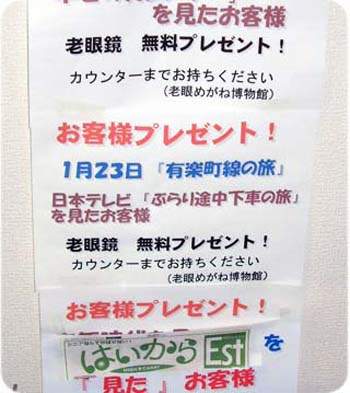 を見たお客様
老眼鏡 無料プレゼント！
カウンターまでお持ちください
（老眼めがね博物館）
お客様プレゼント！
1月23日 『有楽町線の旅』
日本テレビ「ぶらり途中下車の旅」
を見たお客様
老眼鏡 無料プレゼント！
カウンターまでお持ちください
（老眼めがね博物館）
お客様プレゼント！
はいから Est を
『 見た 』 お客様